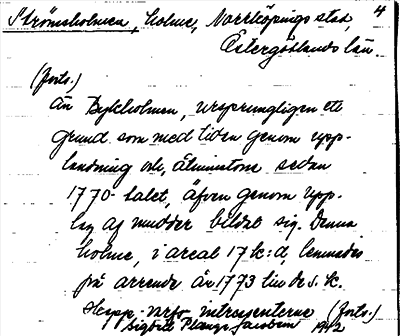 Strömsholmen, holme, Norrköpings stad, 4
Östergötlands län.
(forts.)
än Bykholmen, ursprungligen ett
grund som med tiden genom upp-
landning och, åtminstone sedan
1770-talet, äfven genom upp-
lag af mudder bildat sig. Denna
holme, i areal 17 k:d, lemnades
på arrende år 1773 till de s. k.
Skepp-varfs intressenterne (forts.)
1942